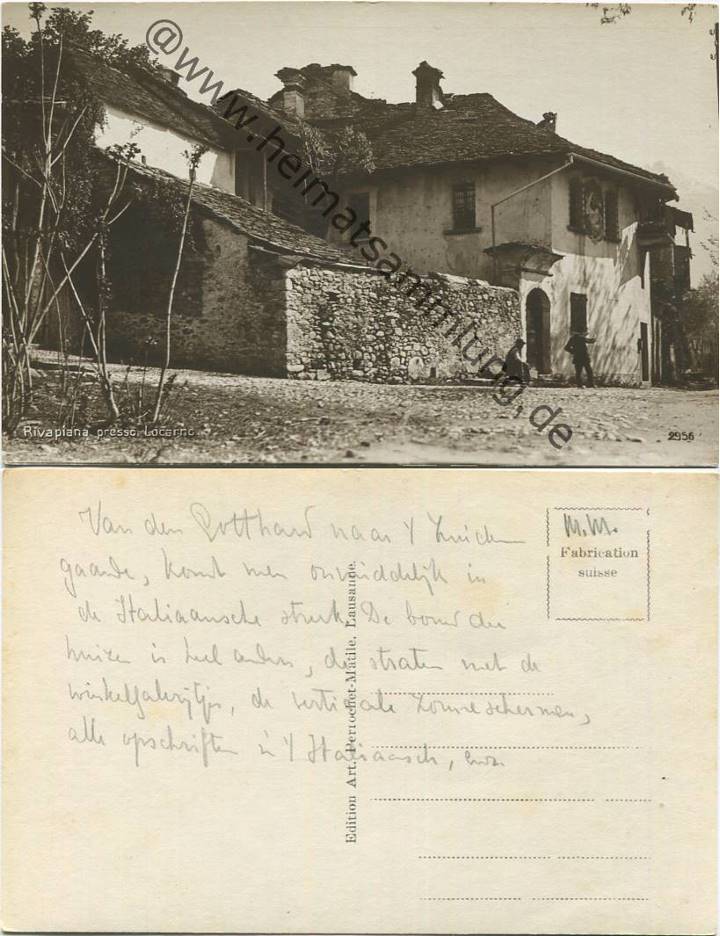 @www.heimatsammlung.de
Rivapiana presso Locarno
2956
Van den Gotthard naar 't Zuiden
gaande, komt men onmiddelijk in
de Italiaansche streek. De bouw der
huizen is heel anders, de straten met de
winkelgalerijtjes, de vertikale zonneschermen,
alle opschriften in 't Italiaansch, enz.
M.M.
Fabrication
suisse
Edition Art. Perrochet-Matile, Lausanne.